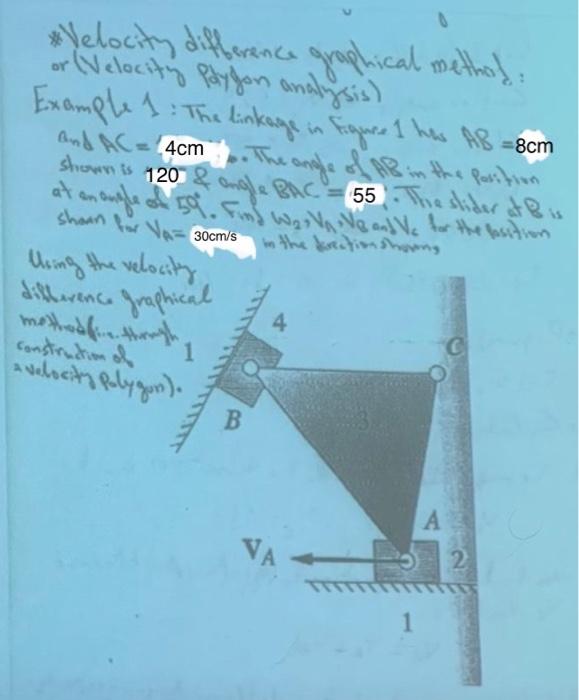 *Velocity difference graphical method:
or (Velocity Polygon analysis)
Example 1: The linkage in Figure 1 has AB = 8cm
and AC = 4cm. The angle of AB in the position
shown is 120 & angle BAC = 55. The slider at B is
at an angle of 59°. Find W2, VA, VB and Vc for the position
shown for VA= 30cm/s in the direction shown,
Using the velocity
difference graphical
method (i.e. through
construction of
a velocity Polygon).
4
1
C
B
3
A
VA
2
1